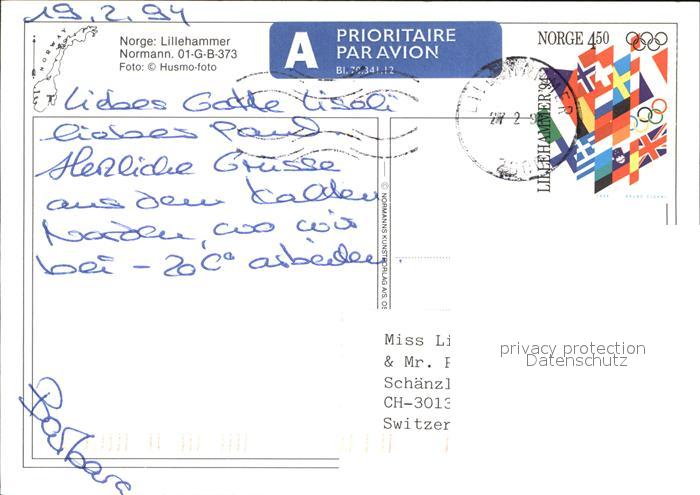 19.2.94
NORWAY
Norge: Lillehammer
Normann. 01-G-B-373
Foto: © Husmo-foto
A PRIORITAIRE
PAR AVION
Bl. 70.341.12
NORGE 4.50
LILLEHAMMER '94
Liebes Gotte Liseli
liebes Paul
Herzliche Grüsse
aus dem kalten
Norden, wo wir
bei - 20 C° arbeiten.
Barbara
© NORMANNS KUNSTFORLAG A/S, OS
Miss Li
& Mr. P
Schänzl
CH-3013
Switzer
privacy protection
Datenschutz